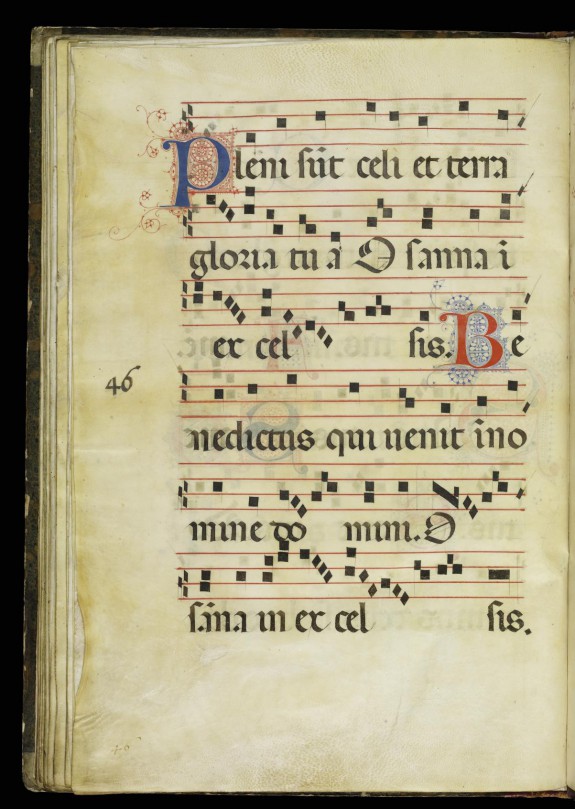 Pleni sūt celi et terra
gloria tu a O sanna ī
ex cel sis. Be
46
nedictus qui uenit ī no
mine do mini. O
sāna in ex cel sis.
46